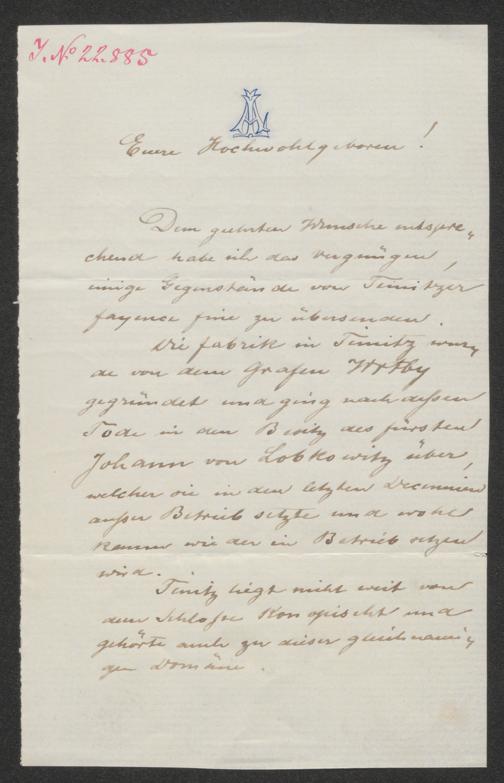 J. No 22.885
AL
Euere Hochwohlgeboren!
Dem geehrten Wunsche entspre„
chend habe ich das Vergnügen,
einige Gegenstände von Teinitzer
fayence fine zu übersenden.
Die Fabrik in Teinitz wur„
de von dem Grafen Wrtby
gegründet und ging nach dessen
Tode in den Besitz des Fürsten
Johann von Lobkowitz über,
welcher sie in den letzten Decennien
außer Betrieb setzte und wohl
kaum wieder in Betrieb setzen
wird.
Teinitz liegt nicht weit von
dem Schloße Konopischt und
gehörte auch zu dieser gleichnami„
gen Domäne.